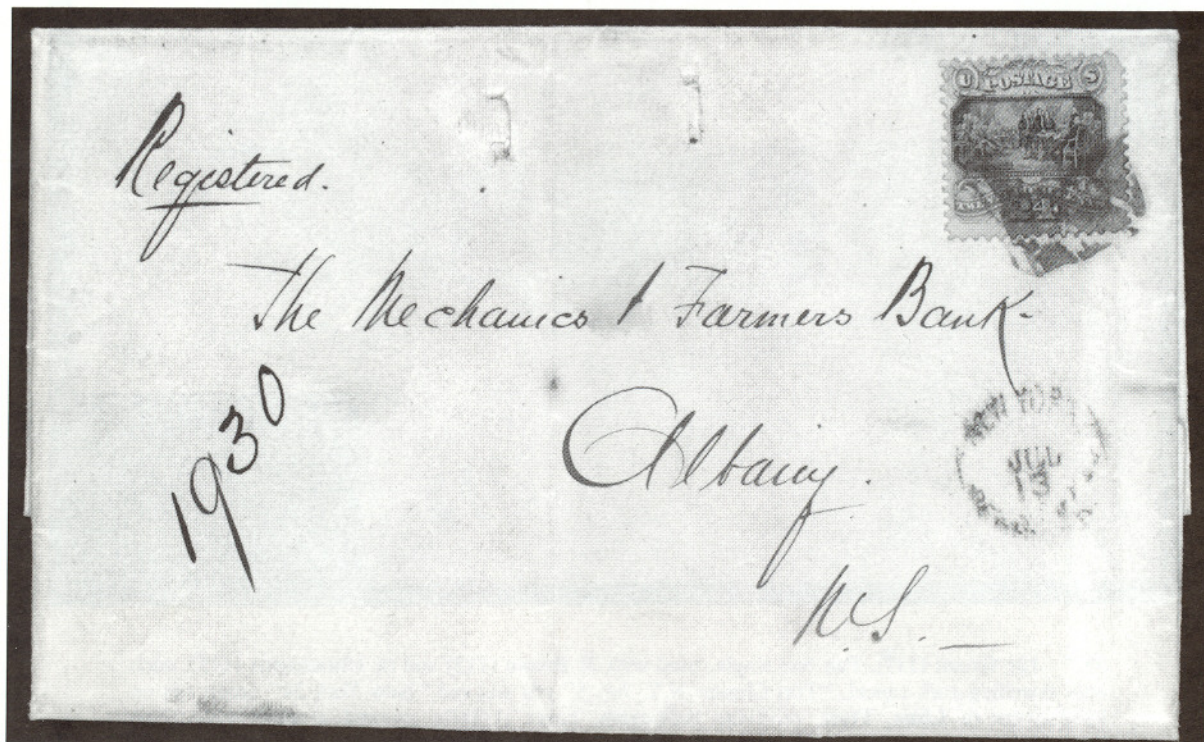 U POSTAGE S
24
Registered.
The Mechanics & Farmers Bank-
1930
Albany.
N.Y.
NEW YORK
JUL
13